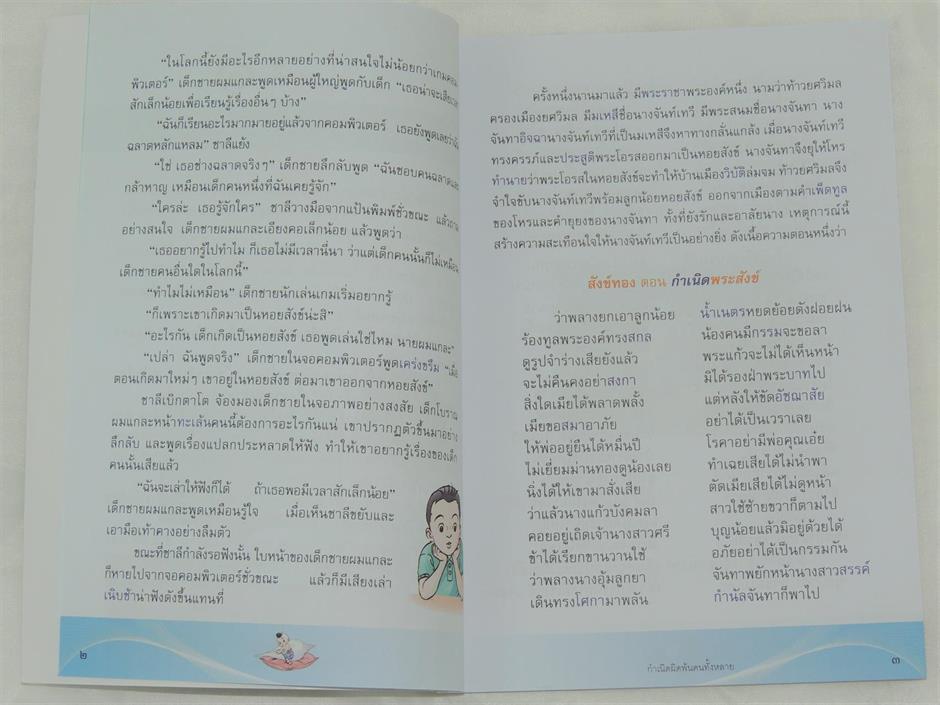 “ในโลกนี้ยังมีอะไรอีกหลายอย่างที่น่าสนใจไม่น้อยกว่าเกมคอม
พิวเตอร์” เด็กชายผมแกละพูดเหมือนผู้ใหญ่พูดกับเด็ก “เธอน่าจะเสียเวลา
สักเล็กน้อยเพื่อเรียนรู้เรื่องอื่นๆ บ้าง”
“ฉันก็เรียนอะไรมากมายอยู่แล้วจากคอมพิวเตอร์ เธอยังพูดเลยว่าฉัน
ฉลาดหลักแหลม” ชาลีแย้ง
“ใช่ เธอช่างฉลาดจริงๆ” เด็กชายลึกลับพูด “ฉันชอบคนฉลาดและ
กล้าหาญ เหมือนเด็กคนหนึ่งที่ฉันเคยรู้จัก”
“ใครล่ะ เธอรู้จักใคร” ชาลีวางมือจากแป้นพิมพ์ชั่วขณะ แล้วถาม
อย่างสนใจ เด็กชายผมแกละเอียงคอเล็กน้อย แล้วพูดว่า
“เธออยากรู้ไปทำไม ก็เธอไม่มีเวลานี่นา ว่าแต่เด็กคนนั้นก็ไม่เหมือน
เด็กชายคนอื่นใดในโลกนี้”
“ทำไมไม่เหมือน” เด็กชายนักเล่นเกมเริ่มอยากรู้
“ก็เพราะเขาเกิดมาเป็นหอยสังข์น่ะสิ”
“อะไรกัน เด็กเกิดเป็นหอยสังข์ เธอพูดเล่นใช่ไหม นายผมแกละ”
“เปล่า ฉันพูดจริง” เด็กชายในจอคอมพิวเตอร์พูดเคร่งขรึม “เมื่อ
ตอนเกิดมาใหม่ๆ เขาอยู่ในหอยสังข์ ต่อมาเขาออกจากหอยสังข์”
ชาลีเบิกตาโต จ้องมองเด็กชายในจอภาพอย่างสงสัย เด็กโบราณ
ผมแกละหน้าทะเล้นคนนี้ต้องการอะไรกันแน่ เขาปรากฏตัวขึ้นมาอย่าง
ลึกลับ และพูดเรื่องแปลกประหลาดให้ฟัง ทำให้เขาอยากรู้เรื่องของเด็ก
คนนั้นเสียแล้ว
“ฉันจะเล่าให้ฟังก็ได้ ถ้าเธอพอมีเวลาสักเล็กน้อย”
เด็กชายผมแกละพูดเหมือนรู้ใจ เมื่อเห็นชาลีขยับและ
เอามือเท้าคางอย่างลืมตัว
ขณะที่ชาลีกำลังรอฟังนั้น ใบหน้าของเด็กชายผมแกละ
ก็หายไปจากจอคอมพิวเตอร์ชั่วขณะ แล้วก็มีเสียงเล่า
เนิบช้าน่าฟังดังขึ้นแทนที่
๒
ครั้งหนึ่งนานมาแล้ว มีพระราชาพระองค์หนึ่ง นามว่าท้าวยศวิมล
ครองเมืองยศวิมล มีมเหสีชื่อนางจันท์เทวี มีพระสนมชื่อนางจันทา นาง
จันทาอิจฉานางจันท์เทวีที่เป็นมเหสีจึงหาทางกลั่นแกล้ง เมื่อนางจันท์เทวี
ทรงครรภ์และประสูติพระโอรสออกมาเป็นหอยสังข์ นางจันทาจึงยุให้โหร
ทำนายว่าพระโอรสในหอยสังข์จะทำให้บ้านเมืองวิบัติล่มจม ท้าวยศวิมลจึง
จำใจขับนางจันท์เทวีพร้อมลูกน้อยหอยสังข์ ออกจากเมืองตามคำเพ็ดทูล
ของโหรและคำยุยงของนางจันทา ทั้งที่ยังรักและอาลัยนาง เหตุการณ์นี้
สร้างความสะเทือนใจให้นางจันท์เทวีเป็นอย่างยิ่ง ดังเนื้อความตอนหนึ่งว่า
สังข์ทอง ตอน กำเนิดพระสังข์
ว่าพลางยกเอาลูกน้อย น้ำเนตรหยดย้อยดังฝอยฝน
ร้องทูลพระองค์ทรงสกล น้องคนมีกรรมจะขอลา
ดูรูปจำร่างเสียยังแล้ว พระแก้วจะไม่ได้เห็นหน้า
จะไม่คืนคงอย่าสงกา มิได้รองฝ่าพระบาทไป
สิ่งใดเมียได้พลาดพลั้ง แต่หลังให้ขัดอัชฌาสัย
เมียขอสมาอาภัย อย่าได้เป็นเวราเลย
ให้พ่ออยู่ยืนได้หมื่นปี โรคาอย่ามีพ่อคุณเอ๋ย
ไม่เยี่ยมม่านทองดูน้องเลย ทำเฉยเสียได้ไม่นำพา
นิ่งได้ให้เขามาสั่งเสีย ตัดเมียเสียได้ไม่ดูหน้า
ว่าแล้วนางแก้วบังคมลา สาวใช้ซ้ายขวาก็ตามไป
คอยอยู่เถิดเจ้านางสาวศรี บุญน้อยแล้วมิอยู่ด้วยได้
ข้าได้เรียกขานวานใช้ อภัยอย่าได้เป็นกรรมกัน
ว่าพลางนางอุ้มลูกยา จันทาพยักหน้านางสาวสรรค์
เดินทรงโศกามาพลัน กำนัลจันทาก็พาไป
กำเนิดผิดพ้นคนทั้งหลาย
๓